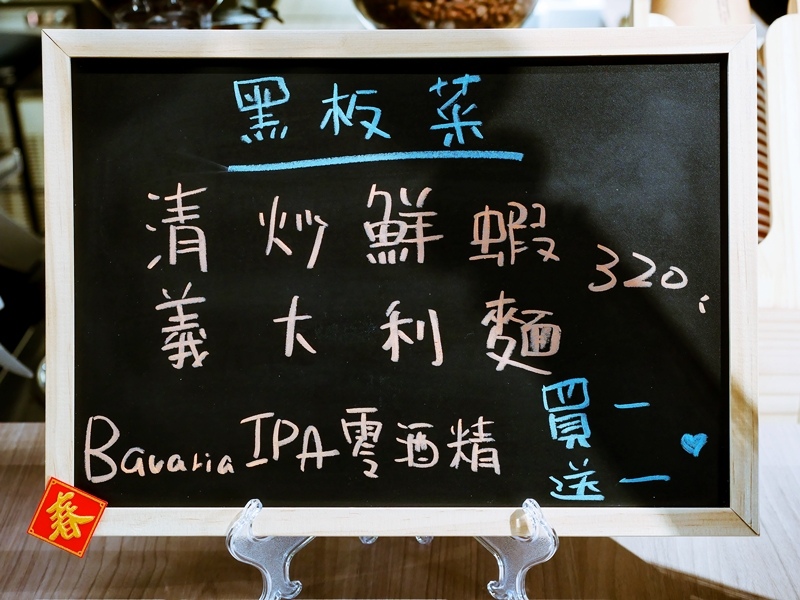 黑板菜
清炒鮮蝦
義大利麵 320.
Bavaria IPA零酒精
買一
送一
春